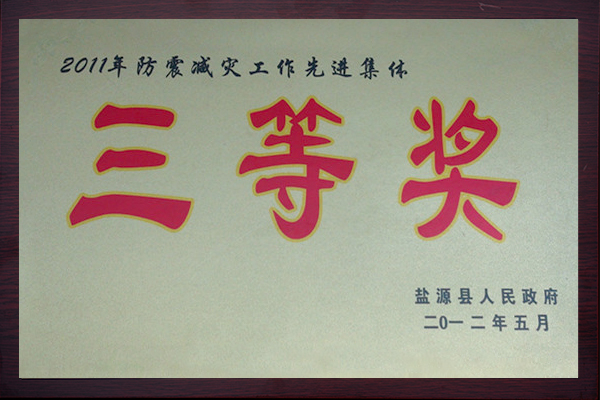 2011年防震减灾工作先进集体
三等奖
盐源县人民政府
二0一二年五月